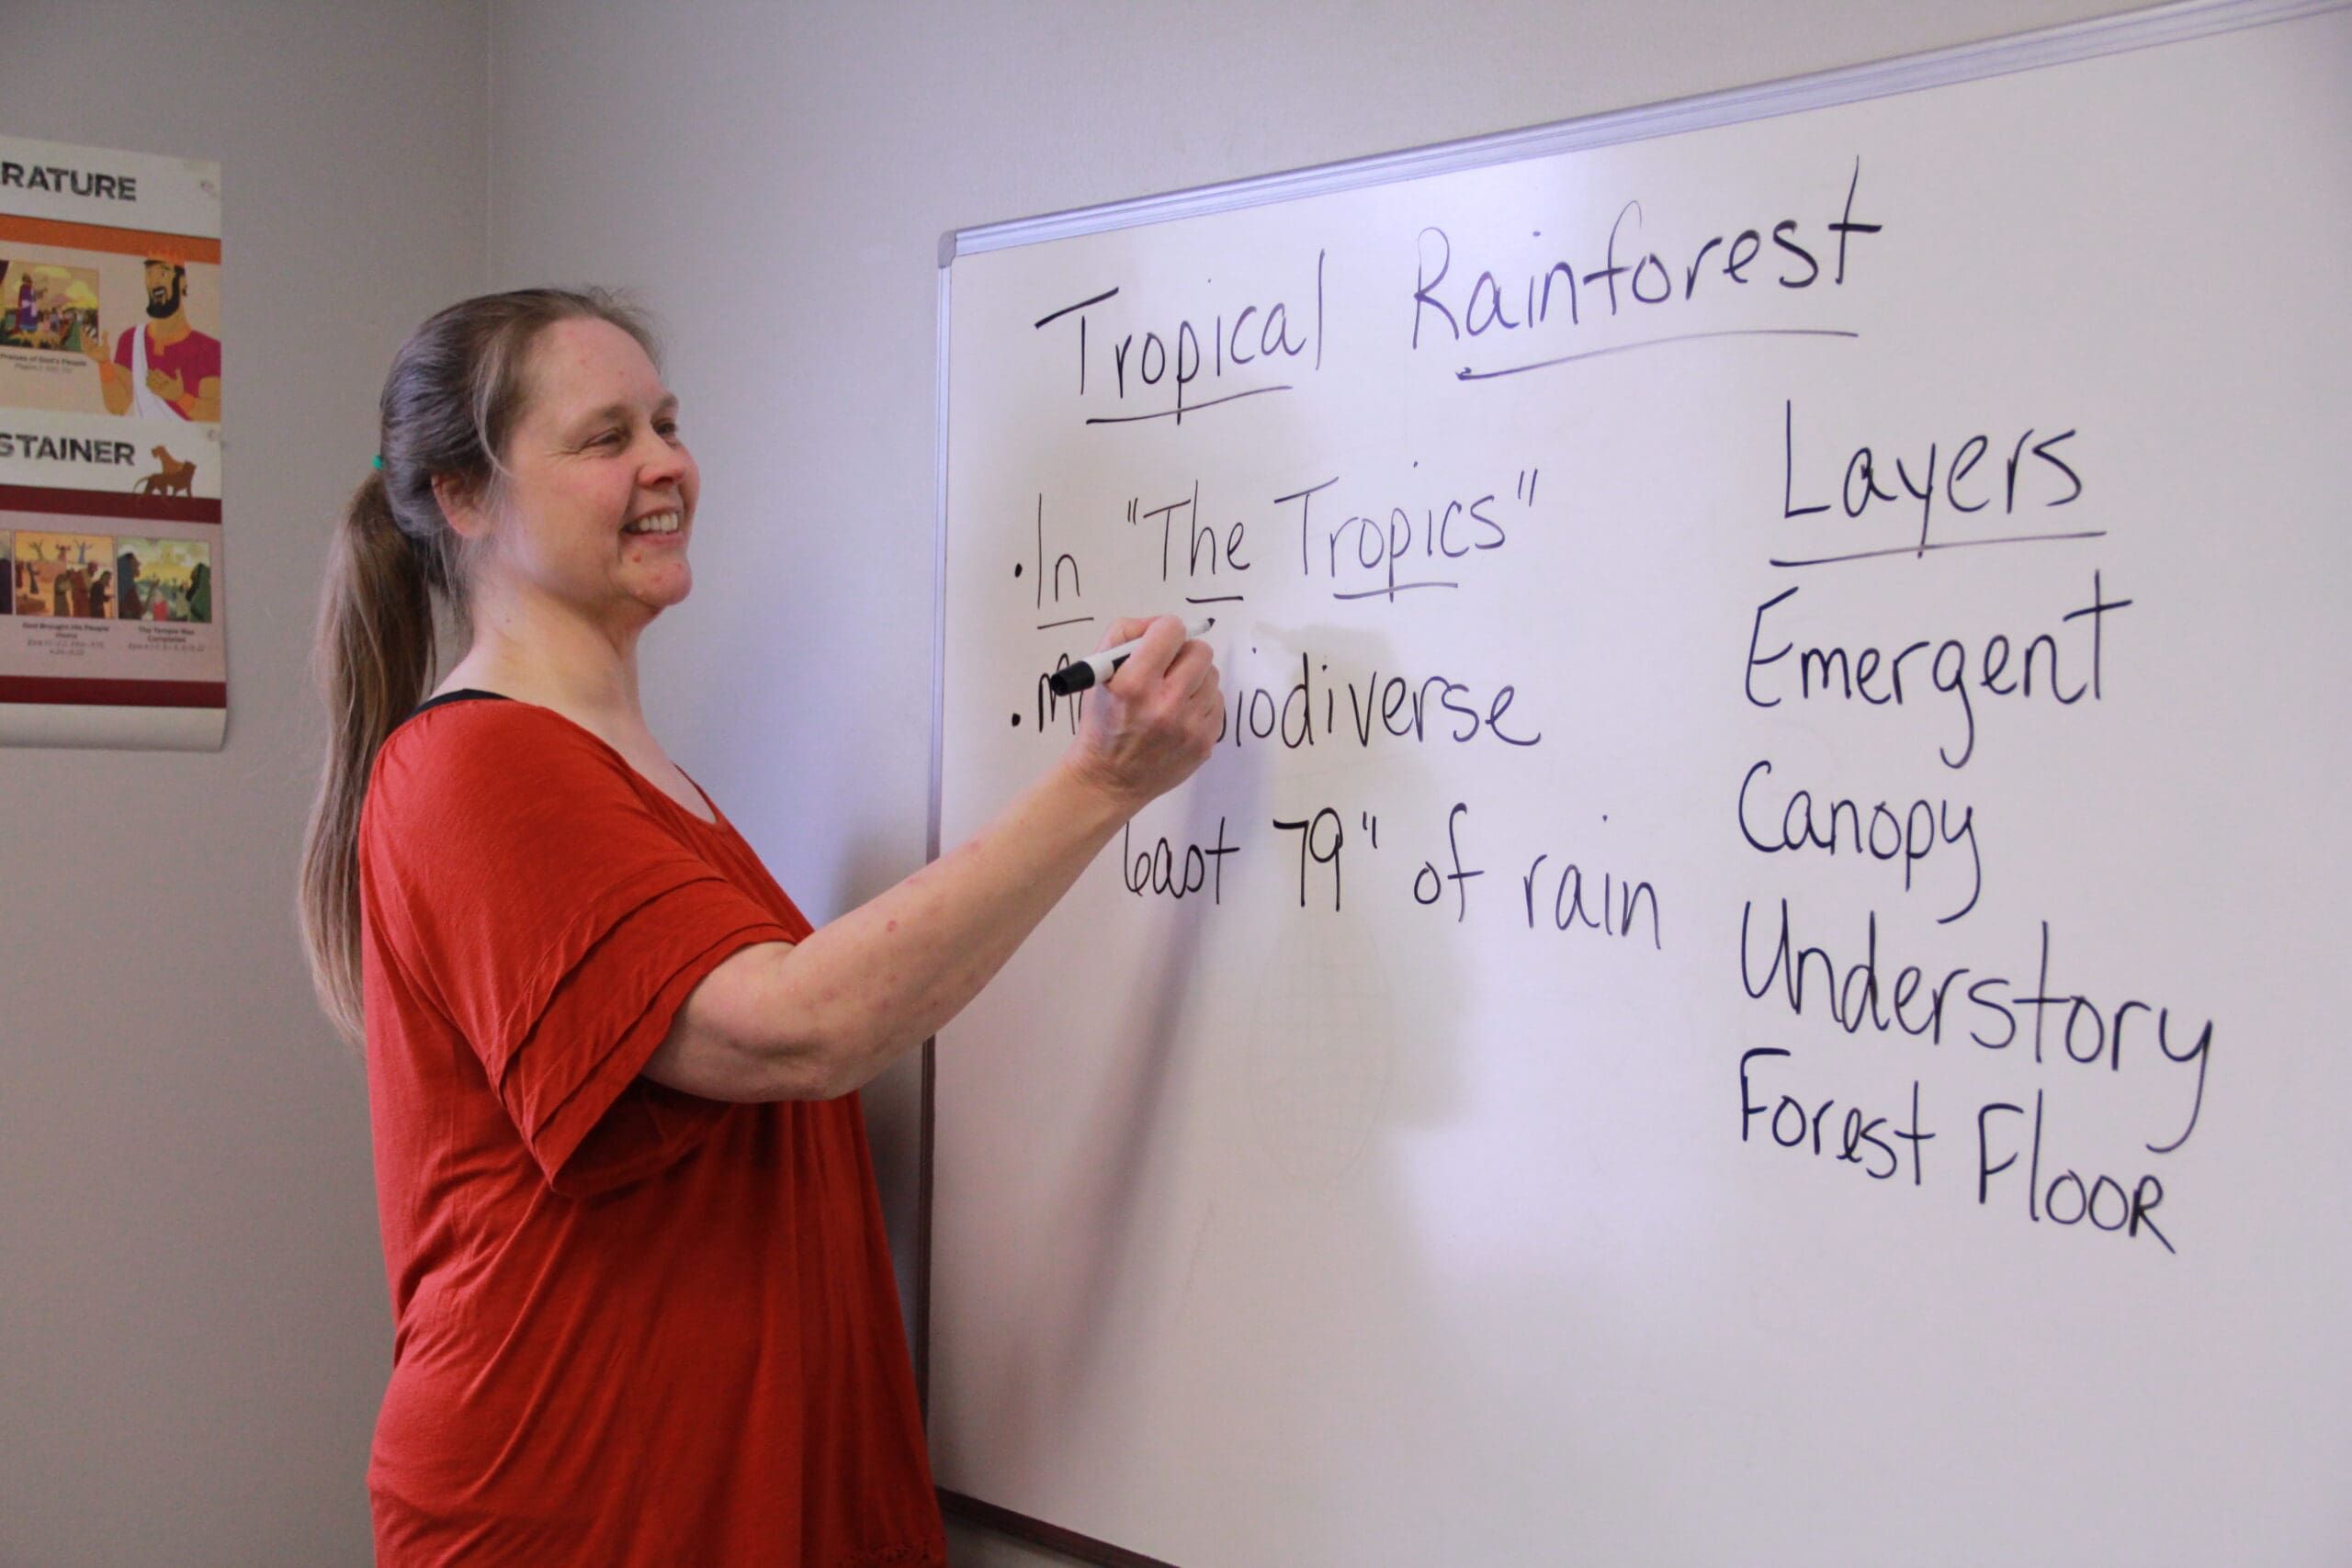 RATURE
Praises of God's People
STAINER
God Brought His People
Home
The Temple Was
Completed
Tropical Rainforest
• In "The Tropics"
• M biodiverse
least 79" of rain
Layers
Emergent
Canopy
Understory
Forest Floor